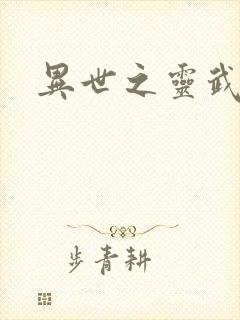 異世之靈武
步青耕